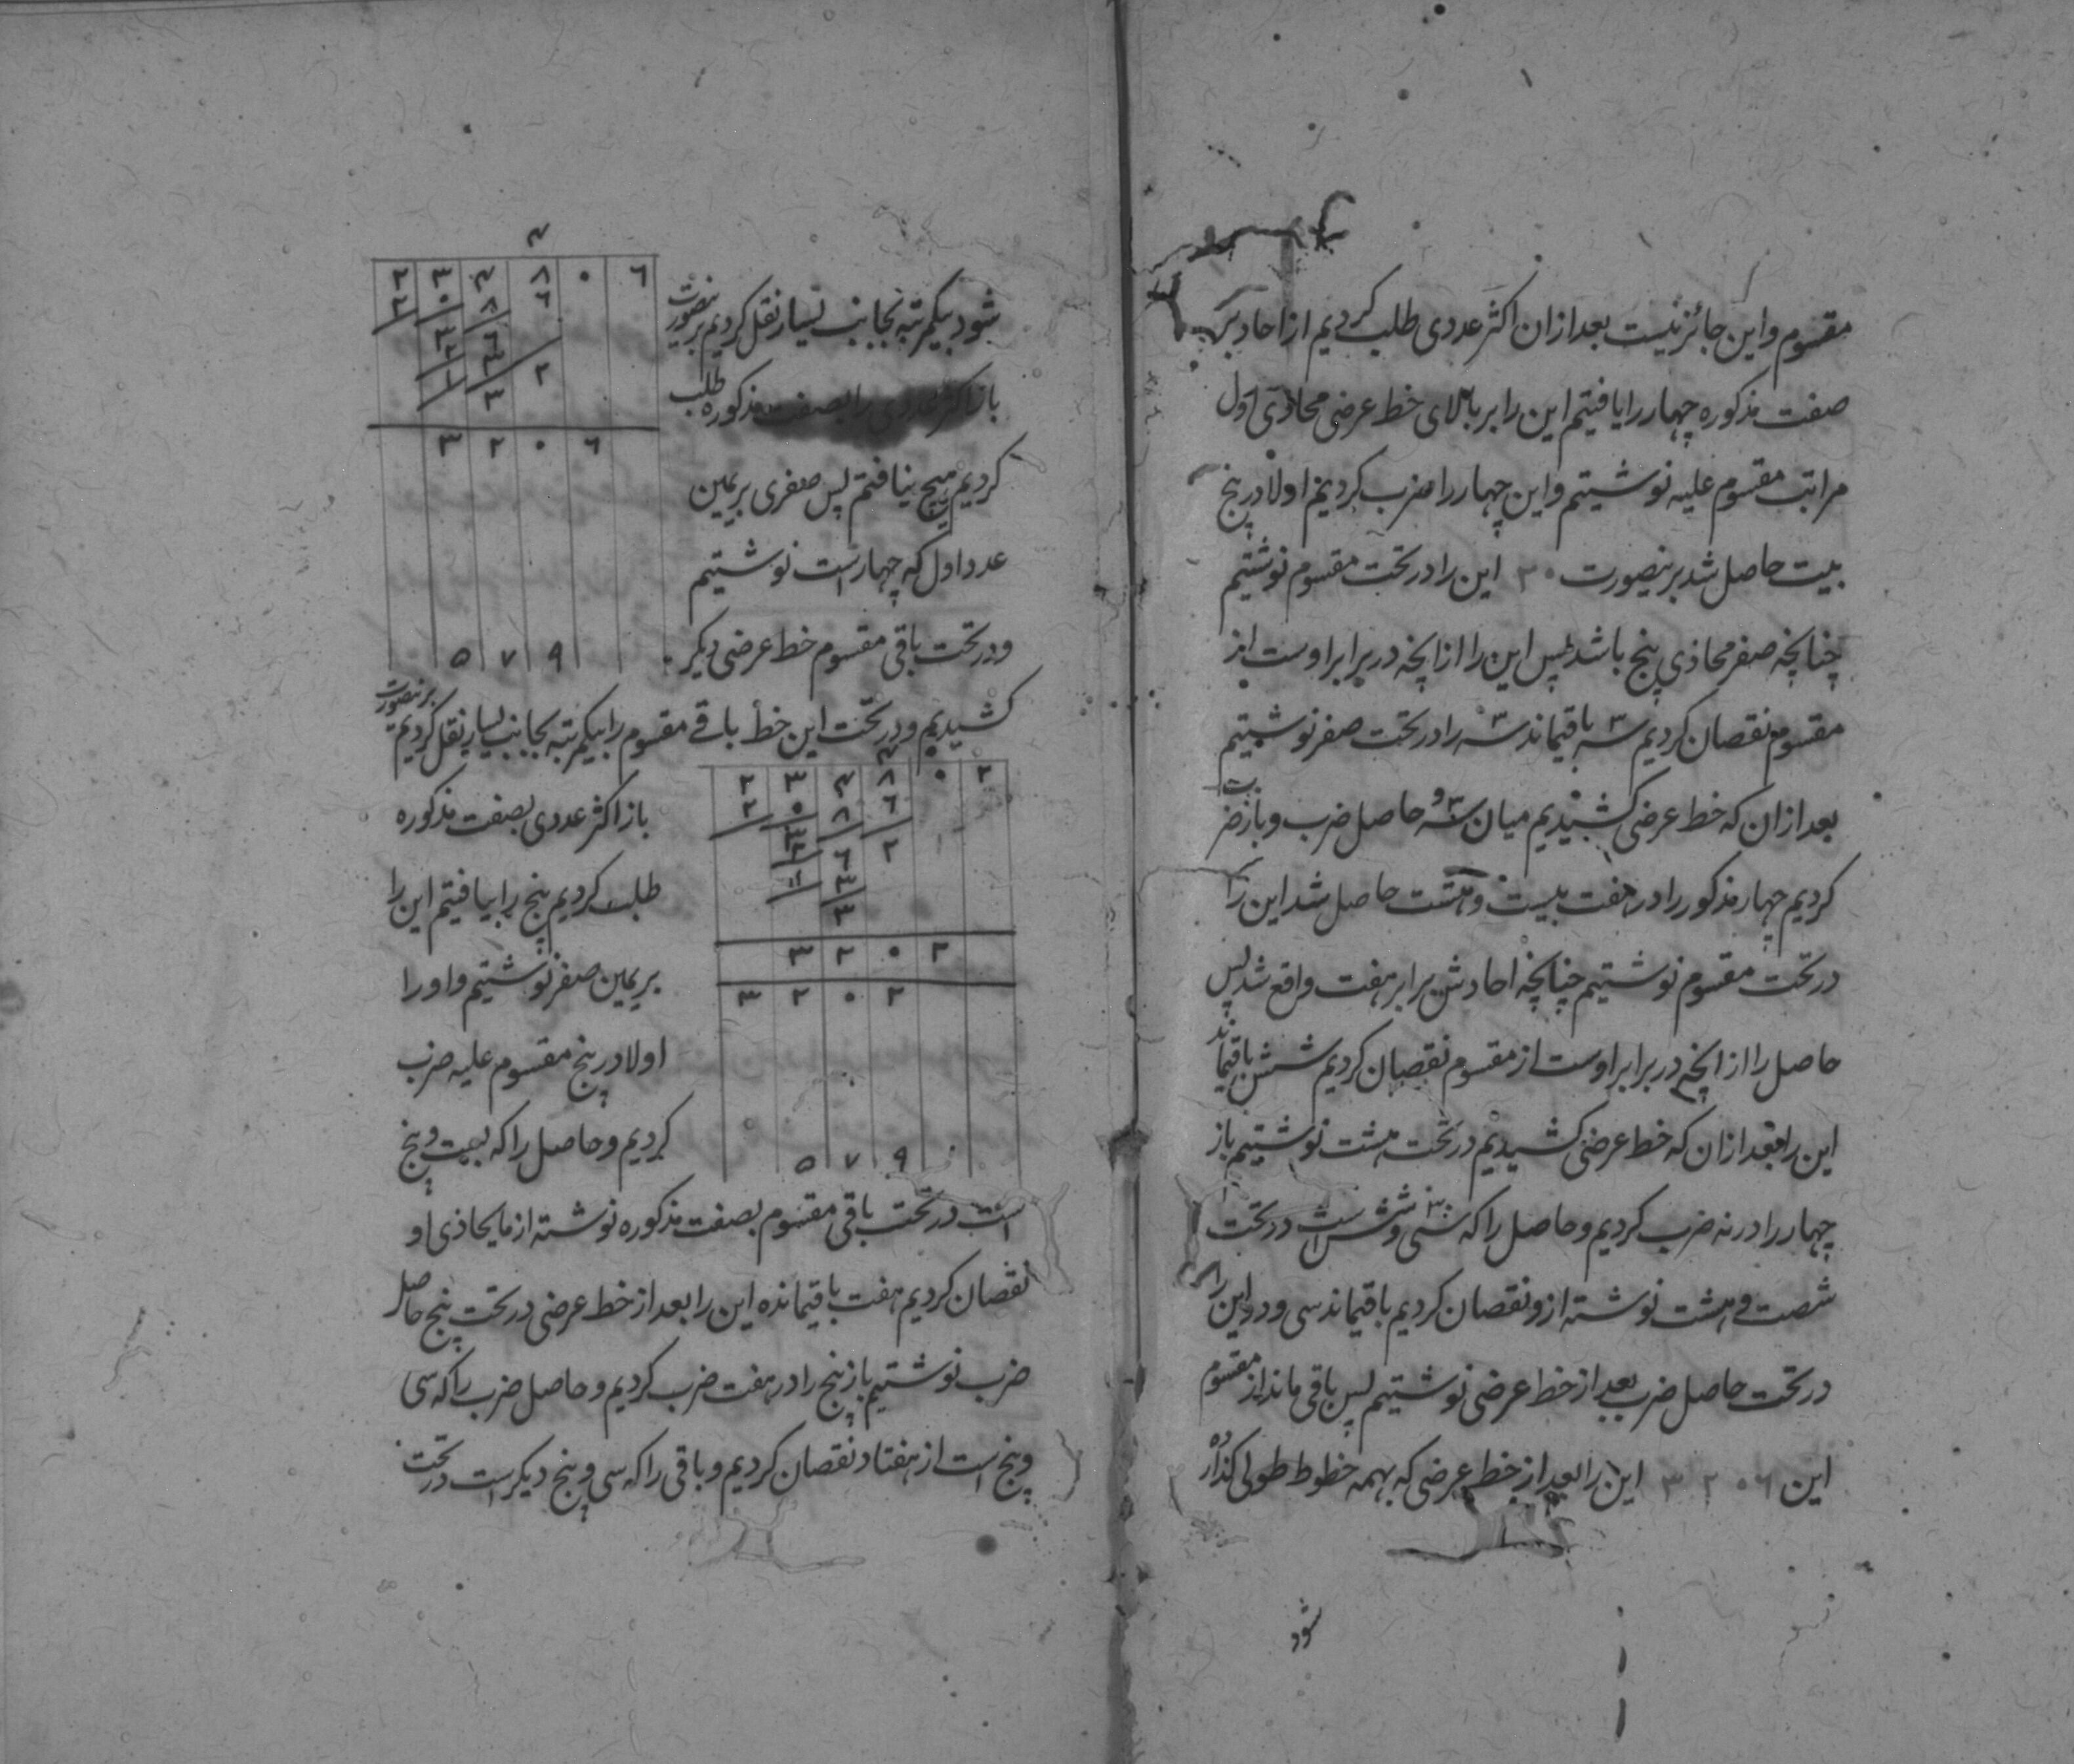 مقسوم و این جائز نیست بعد ازان اکثر عددی طلب کردیم از احاد بر
صفت مذکوره چهار را یافتیم این را بر بالای خط عرضی محاذی اول
مراتب مقسوم علیه نوشتیم و این چهار را ضرب کردیم اولا در پنج
بیست حاصل شد برینصورت ۲۰ این را در تحت مقسوم نوشتیم
چنانچه صفر محاذی پنج باشد پس این را از انچه در برابر اوست از
مقسوم نقصان کردیم سه باقیماند سه را در تحت صفر نوشتیم
بعد ازان که خط عرضی کشیدیم میان سه و حاصل ضرب و باز ضرب
کردیم چهار مذکور را در هفت بیست و هشت حاصل شد این را
در تحت مقسوم نوشتیم چنانچه احادش برابر هفت واقع شد پس
حاصل را از انچه در برابر اوست از مقسوم نقصان کردیم شش باقیماند
این را بعد ازان که خط عرضی کشیدیم در تحت هشت نوشتیم باز
چهار را در نه ضرب کردیم و حاصل را که سی و شش است در تحت
شصت و هشت نوشته ازو نقصان کردیم باقیماند سی و دو این را
در تحت حاصل ضرب بعد از خط عرضی نوشتیم پس باقی ماند از مقسوم
این ۳۲۰۶ این را بعد از خط عرضی که بهمه خطوط طولی گذارد
شود
۴
۲ ۳ ۴ ۸ ۰ ۶
۲ ۰ ۸ ۶
۳ ۶
۲ ۳ ۲
۱ ۳
۳ ۲ ۰ ۶
۵ ۷ ۹
شود بیکمرتبه بجانب یسار نقل کردیم برینصورت
باز اکثر عددی را بصفت مذکوره طلب
کردیم هیچ نیافتم پس صفری بر یمین
عدد اول که چهار است نوشتیم
و در تحت باقی مقسوم خط عرضی دیکر
کشیدیم و در تحت این خط باقے مقسوم را بیکمرتبه بجانب یسار نقل کردیم برینصورت
۴
۲ ۳ ۴ ۸ ۰ ۲
۲ ۰ ۸ ۶
۳
۲ ۶ ۲
۱۱ ۳
۳
۳ ۲ ۰ ۲
۳ ۲ ۰ ۲
۵ ۷ ۹
باز اکثر عددی بصفت مذکوره
طلب کردیم پنج را بیافتیم این را
بر یمین صفر نوشتیم و او را
اولا در پنج مقسوم علیه ضرب
کردیم و حاصل را که بیست و پنج
است در تحت باقی مقسوم بصفت مذکوره نوشته از ما یحاذی او
نقصان کردیم هفت باقیمانده این را بعد از خط عرضی در تحت پنج حاصل
ضرب نوشتیم باز پنج را در هفت ضرب کردیم و حاصل ضرب را که سی
و پنج است از هفتاد نقصان کردیم و باقی را که سی و پنج دیکر است در تحت